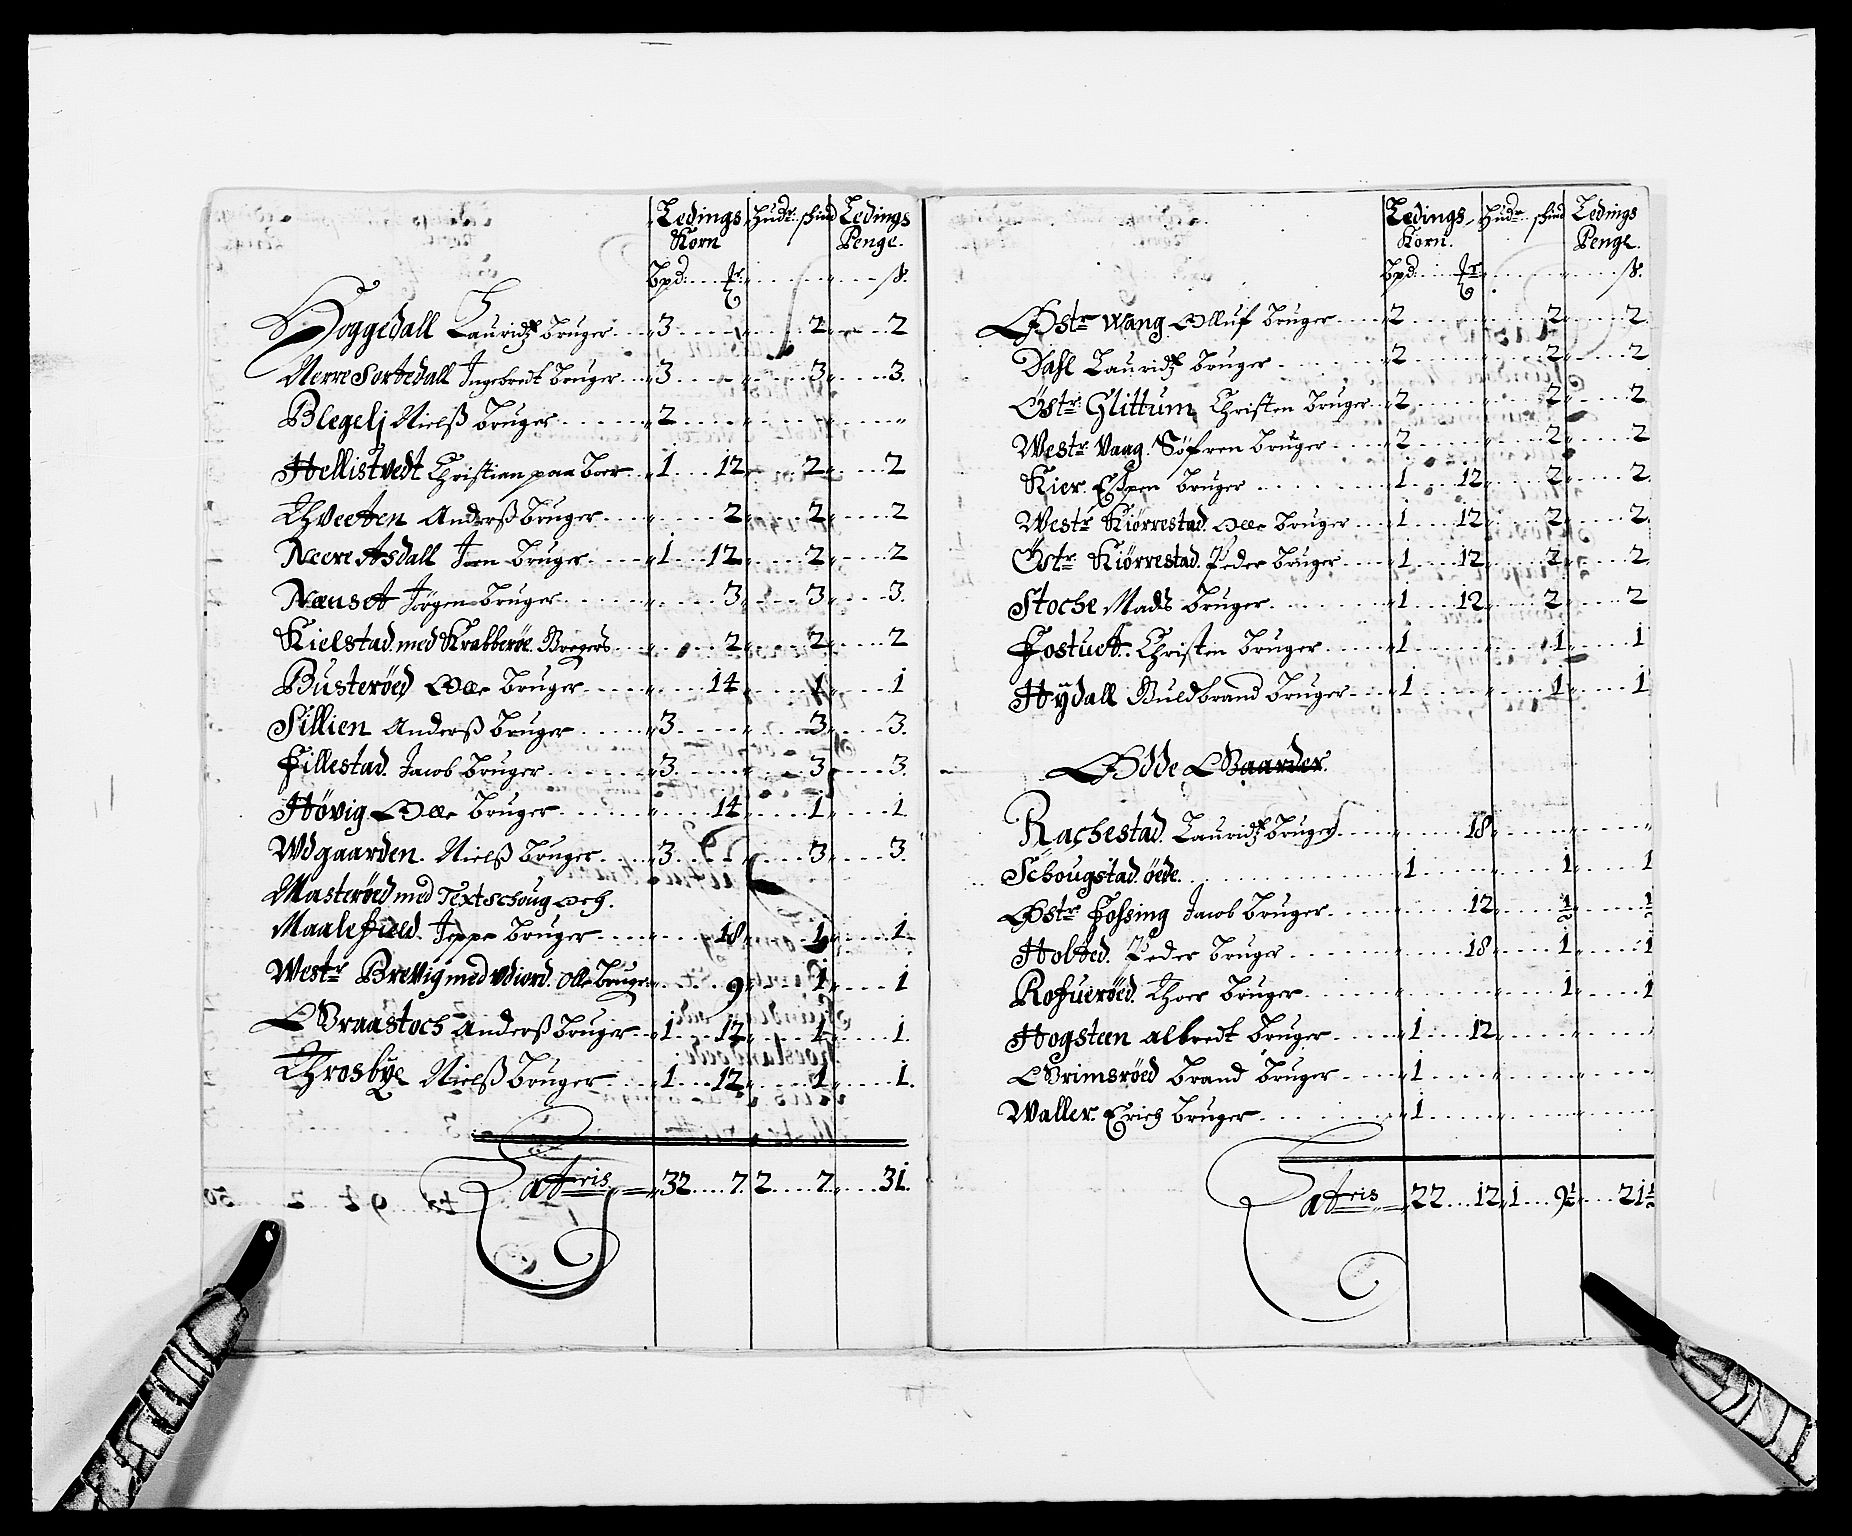 Ledings Korn Hudr. skind Ledings Penge.
Bpd: ℔ ß.
Doggedall Lauridtz Bruger 3 2 2
Nerre Sortedall Ingebredt Bruger 3 3 3.
Blegelj Nielß Bruger 2
Hellistvedt Christian paa Boer 1 12 2 2
Thveeten Anderß Bruger 2 2 2
Neere Asdall Joen Bruger 1 12 2 2
Næuset Jørgen Bruger 3 3 3.
Kielstad med Krabberøe. Bregers 2 2 2
Busterøed Olle Bruger 14 1 1
Sillien Anderß Bruger 3 3 3.
Fillestad. Jacob Bruger 3 3 3.
Høvig Olle Bruger 14 1 1
Wdgaarden. Nielß Bruger 3 3 3.
Masterøed med Textschoug och.
Maalefield. Jeppe Bruger 18 1 1.
Westr Brevig med vdiord. Olle Bruger 9 1 1
Graastoch Anderß Bruger 1 12 1 1.
Throsbye Nielß Bruger 1 12 1 1.
Latris 32 7. 2 7 31.
Ledings Korn. Hudr skind Ledings Penge.
Bpd: ℔ ß.
Østr Wang Olluf Bruger 2 2 2.
Dahl Lauridtz Bruger 2 2 2
Østr: Glittum Christen Bruger 2 2 2
Westr Vaag. Søfren Bruger 2 2 2
Kier. Espen Bruger 1 12 2 2.
Westr Kiørrestad. Olle Bruger 1 12 2 2.
Østr Kiørrestad. Peder Bruger 1 12 2 2.
Stoche Madts Bruger 1 12 2 2
Fostuet. Christen Bruger 1 1 1
Hÿdall Guldbrand Bruger 1 1 1
Ødde Gaarder.
Rachestad. Lauridtz Bruger 18
Schougstad. øede. 1 1 1
Østr Fossing Jacob Bruger 12 ½ ½
Holted. Peder Bruger 18 1 1
Rofuerøed. Thoer Bruger 1 1
Hogsteen albredt Bruger 1 12
Grimsrøed Brand Bruger 1
Waller. Erich Bruger 1
Latris 22 12 1 9½ 21½